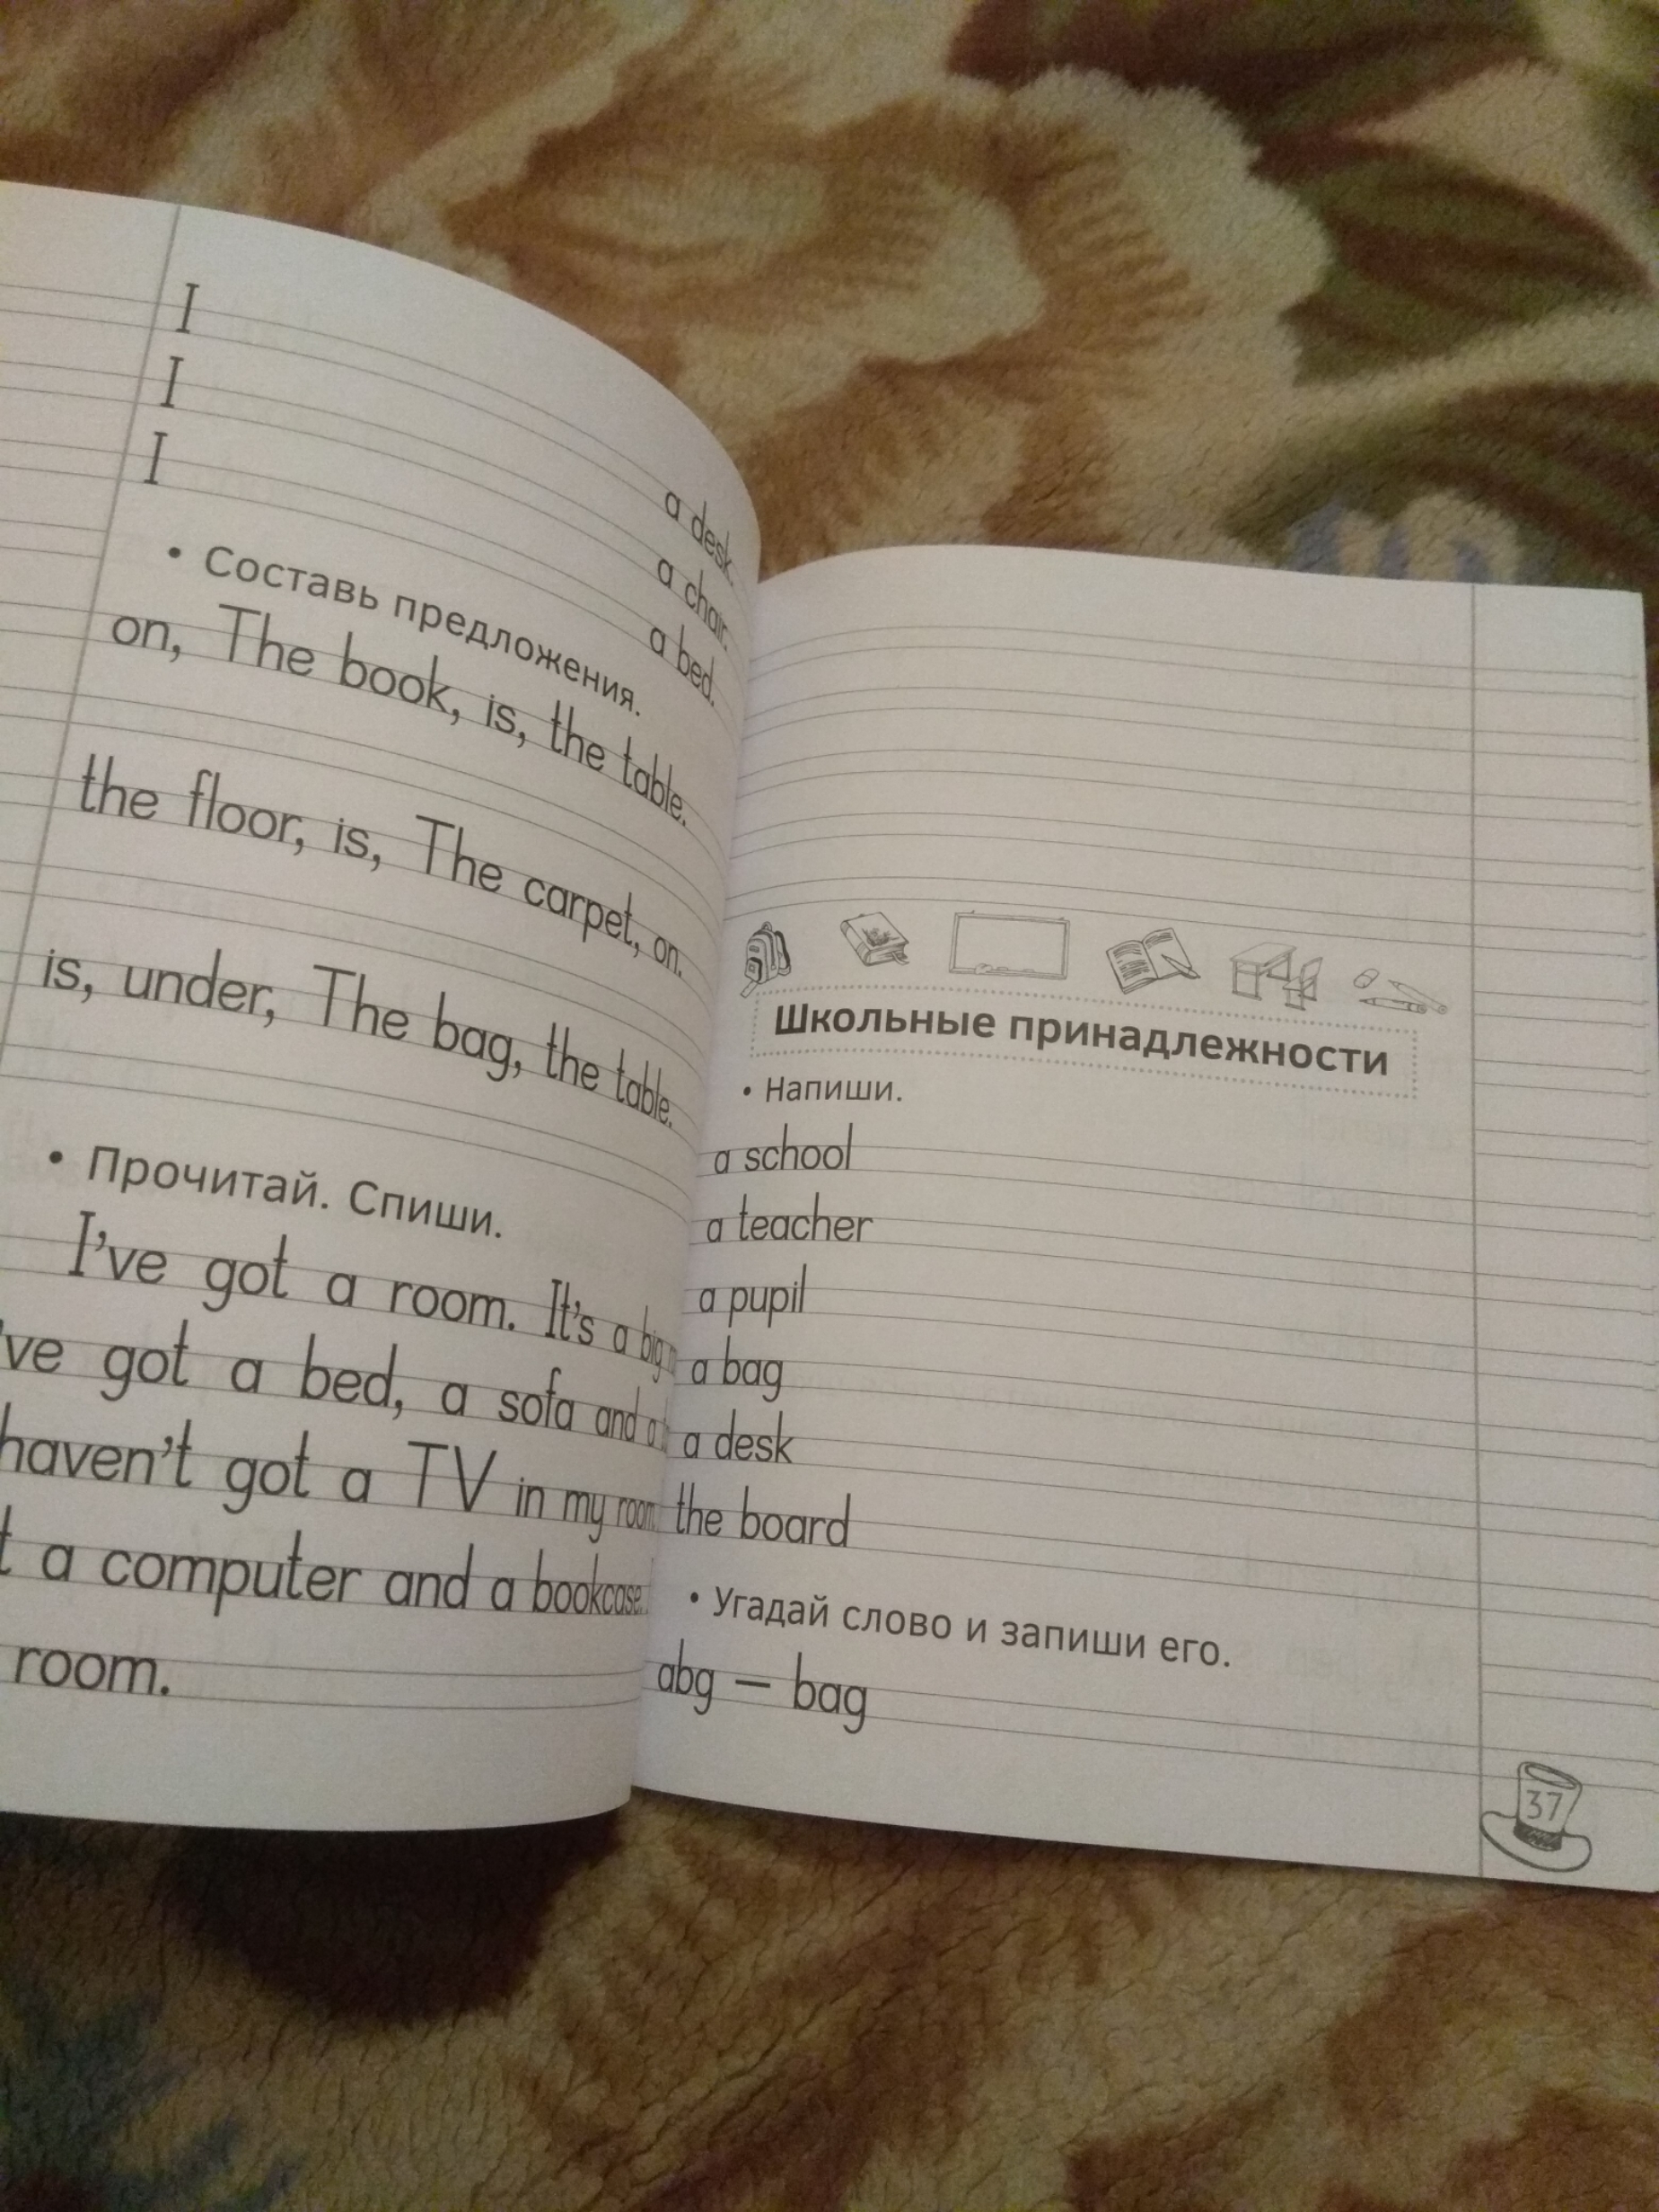 I a desk.
I a chair.
I a bed.
• Составь предложения.
on, The book, is, the table.
the floor, is, The carpet, on.
is, under, The bag, the table.
• Прочитай. Спиши.
I've got a room. It's a big
've got a bed, a sofa and a
haven't got a TV in my room.
t a computer and a bookcase.
room.
Школьные принадлежности
• Напиши.
a school
a teacher
a pupil
a bag
a desk
the board
• Угадай слово и запиши его.
abg — bag
37